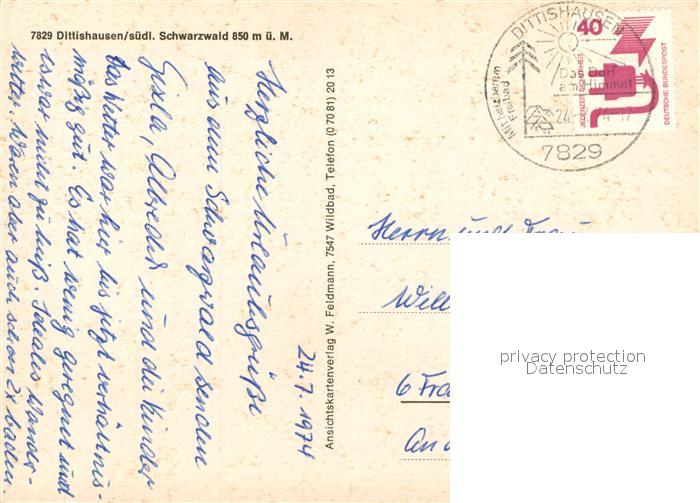 7829 Dittishausen/südl. Schwarzwald 850 m ü. M.
24.7.1974
Herzliche Urlaubsgrüße
aus dem Schwarzwald senden
Gisela, Albrecht und die Kinder
Das Wetter war hier bis jetzt verhältnis-
mäßig gut. Es hat wenig geregnet und
es war nicht zu heiß. Ideales Wander-
wetter. Waren aber auch schon 2x baden
Ansichtskartenverlag W. Feldmann, 7547 Wildbad, Telefon (0 70 81) 20 13
DITTISHAUSEN
Das Dorf
am Himmel
Mit heizbarem
Freibad
24.
7829
40
JEDERZEIT SICHERHEIT
DEUTSCHE BUNDESPOST
Herrn und Frau
Will
6 Fra
An d
privacy protection
Datenschutz